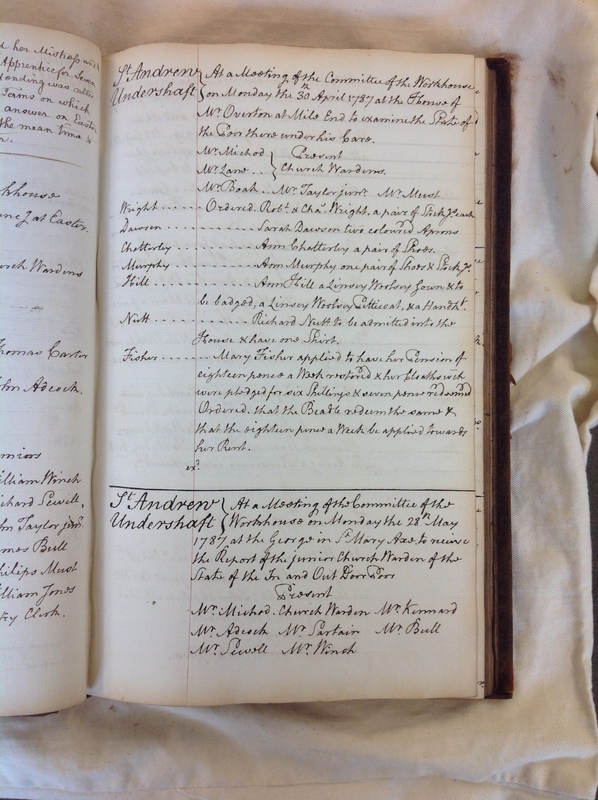 d her Mistress and
Apprentice for Seven
standing was called
Terms on which
answer on Easter
the mean time to
r.
khouse
ne 7 at Easter.
urch Wardens
Thomas Carter
John Adcock.
niors
William Winch
Richard Sewell,
John Taylor junr
James Bull
Philips Must
William Jones
try Clerk.
St Andrew Undershaft
At a Meeting of the Committee of the Workhouse
on Monday the 30th April 1787 at the House of
Mr Overton at Mile End to examine the State of
the Poor there under his Care.
Mr Michod Present
Mr Lane .. Church Wardens.
Mr Boak .. Mr Taylor junr. Mr Must
Wright ...... Ordered. Robt. & Chas. Wright, a pair of Stockgs. each
Dawson .......... Sarah Dawson two coloured Aprons
Chatterley .......... Ann Chatterley a pair of Shoes.
Murphy .......... Ann Murphy one pair of Shoes & Stockgs.
Hill .......... Ann Hill a Linsey Woolsey Gown & to
be badged, a Linsey Woolsey Petticoat, & a Handkt.
Nutt .......... Richard Nutt to be admitted into the
House & have one Shirt.
Fisher ...... Mary Fisher applied to have her Pension of
eighteen pence a Week restored & her Cloaths wch
were pledged for six Shillings & seven pence redeemed
Ordered. that the Beadle redeem the same &
that the eighteen pence a Week be applied towards
her Rent.
exd.
St Andrew Undershaft
At a Meeting of the Committee of the
Workhouse on Monday the 28th May
1787 at the George in St Mary Axe, to receive
the Report of the junior Church Warden of the
State of the In and Out Door Poor
Present
Mr Michod. Church Warden Mr Kennard
Mr Adcock Mr Sartain Mr Bull
Mr Sewell Mr Winch